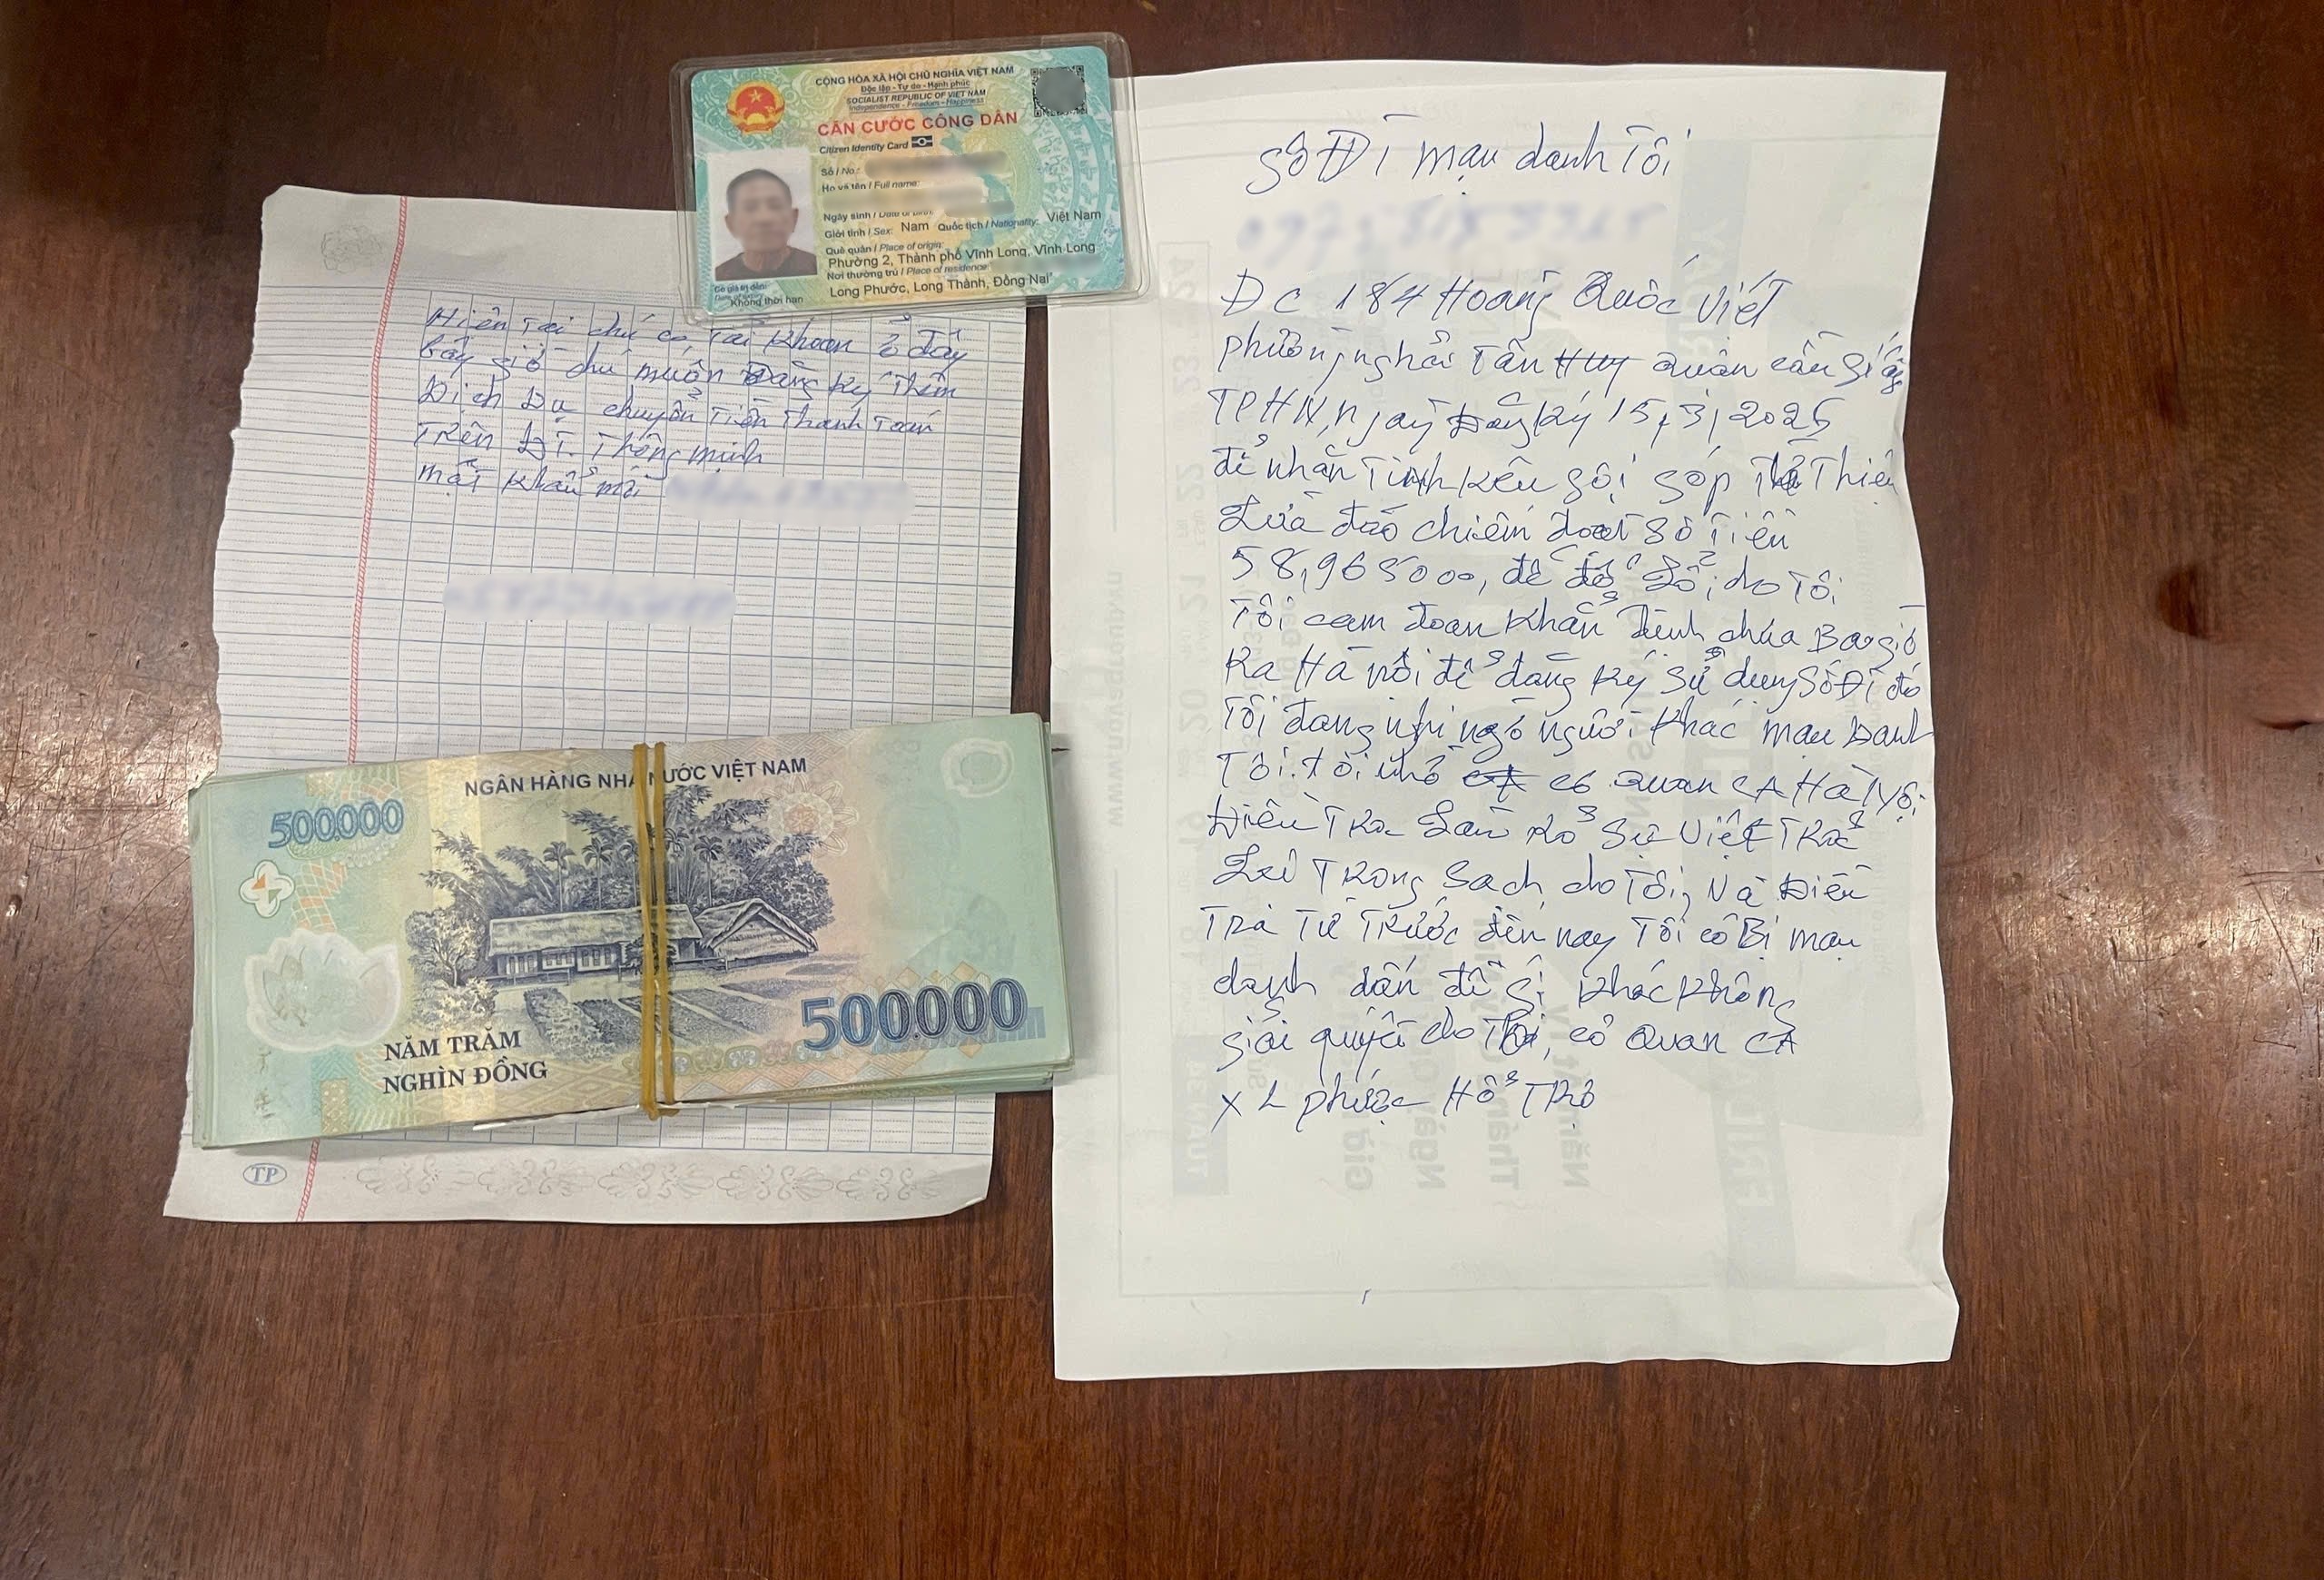 CỘNG HÒA XÃ HỘI CHỦ NGHĨA VIỆT NAM
Độc lập - Tự do - Hạnh phúc
SOCIALIST REPUBLIC OF VIET NAM
Independence - Freedom - Happiness
CĂN CƯỚC CÔNG DÂN
Citizen Identity Card
Số / No.:
Họ và tên / Full name:
Ngày sinh / Date of birth:
Giới tính / Sex: Nam Quốc tịch / Nationality: Việt Nam
Quê quán / Place of origin:
Phường 2, Thành phố Vĩnh Long, Vĩnh Long
Nơi thường trú / Place of residence:
Long Phước, Long Thành, Đồng Nai
Có giá trị đến:
Không thời hạn
Hiên Tại chú có, Tài Khoản ở đây
bây giờ chú muốn Đăng ký Thêm
Dịch Dụ chuyển Tiền Thanh Toán
Trên ĐT. Thông minh
mật khẩu mới
NGÂN HÀNG NHÀ NƯỚC VIỆT NAM
500.000
500.000
NĂM TRĂM
NGHÌN ĐỒNG
TP
Số ĐT mạu danh Tôi
ĐC 184 Hoàng Quốc Việt
phường nghĩa Tân quân cầu Giấy
TPHN, ngày Đăng ký 15, 3, 2025
để nhắn Tinh kêu gọi góp Thiện
Lừa đảo chiếm đoạt số Tiền
58,965000, để đổ Lổi cho Tôi
Tôi cam đoan khẳn định chưa Bao giờ
Ra Hà Nôi để đăng ký Sử dụng Số ĐT đó
Tôi đang nghi ngờ người khác mạu Danh
Tôi. tôi nhờ cơ quan CA Hà Nội
Điều Tra Làm Rỏ Sự Việt Trả
Lại Trong Sạch cho Tôi, Và Điều
Tra Từ Trước đến nay Tôi có Bị mạu
danh dấn đề gì khác không
giải quyết cho Tôi, cơ quan CA
X L phước Hổ Trợ